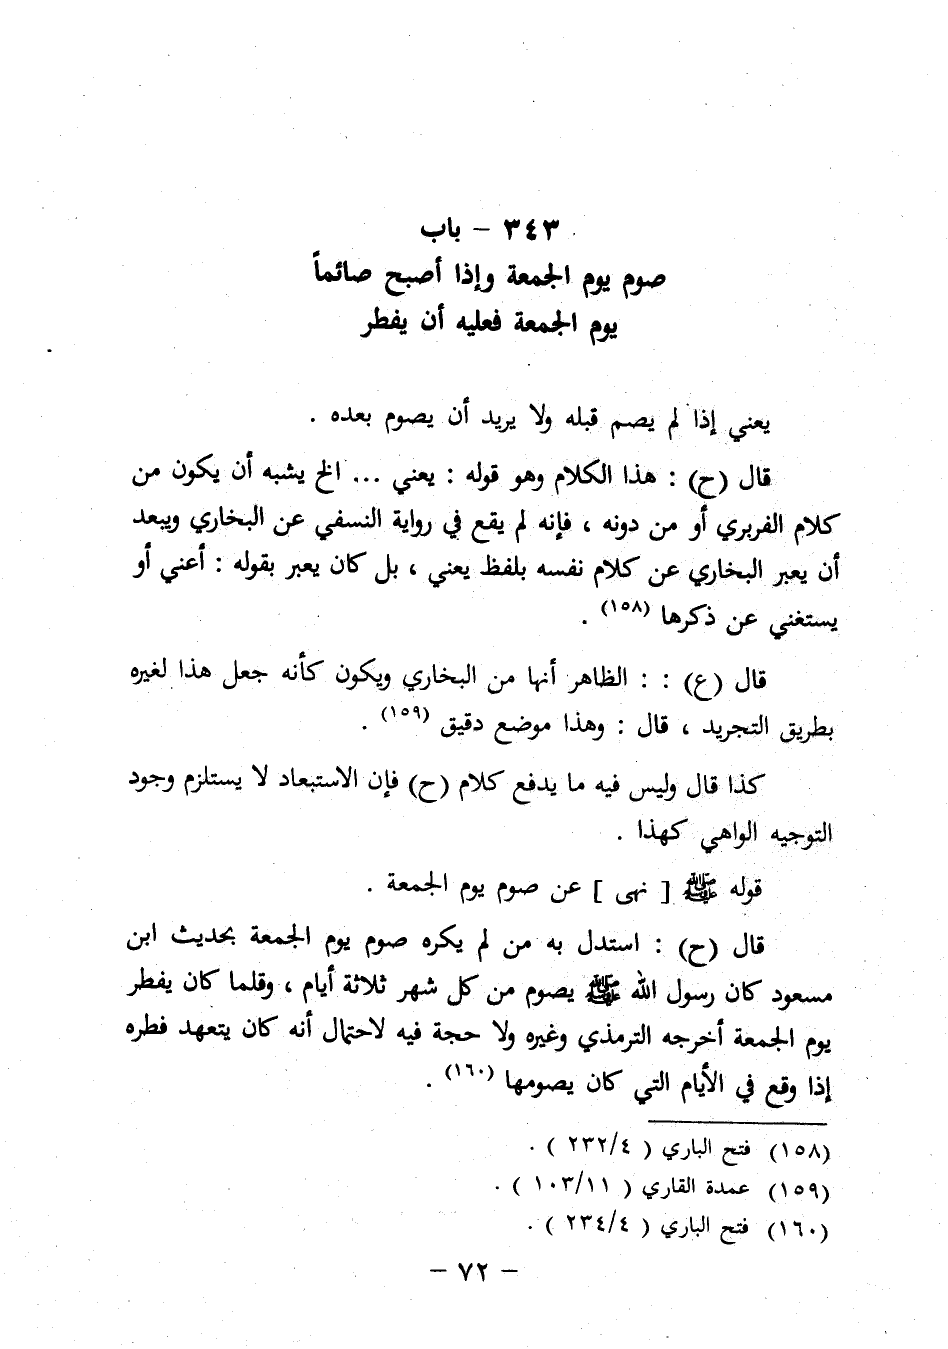 ٣٤٣ - باب
صوم يوم الجمعة وإذا أصبح صائماً
يوم الجمعة فعليه أن يفطر
يعني إذا لم يصم قبله ولا يريد أن يصوم بعده .
قال (ح) : هذا الكلام وهو قوله : يعني ... الخ يشبه أن يكون من
كلام الفربري أو من دونه ، فإنه لم يقع في رواية النسفي عن البخاري ويبعد
أن يعبر البخاري عن كلام نفسه بلفظ يعني ، بل كان يعبر بقوله : أعني أو
يستغني عن ذكرها (١٥٨) .
قال (ع) : : الظاهر أنها من البخاري ويكون كأنه جعل هذا لغيره
بطريق التجريد ، قال : وهذا موضع دقيق (١٥٩) .
كذا قال وليس فيه ما يدفع كلام (ح) فإن الاستبعاد لا يستلزم وجود
التوجيه الواهي كهذا .
قوله ﷺ [ نهى ] عن صوم يوم الجمعة .
قال (ح) : استدل به من لم يكره صوم يوم الجمعة بحديث ابن
مسعود كان رسول الله ﷺ يصوم من كل شهر ثلاثة أيام ، وقلما كان يفطر
يوم الجمعة أخرجه الترمذي وغيره ولا حجة فيه لاحتمال أنه كان يتعهد فطره
إذا وقع في الأيام التي كان يصومها (١٦٠) .
(١٥٨) فتح الباري ( ٢٣٢/٤ ) .
(١٥٩) عمدة القاري ( ١٠٣/١١ ) .
(١٦٠) فتح الباري ( ٢٣٤/٤ ) .
- ٧٢ -